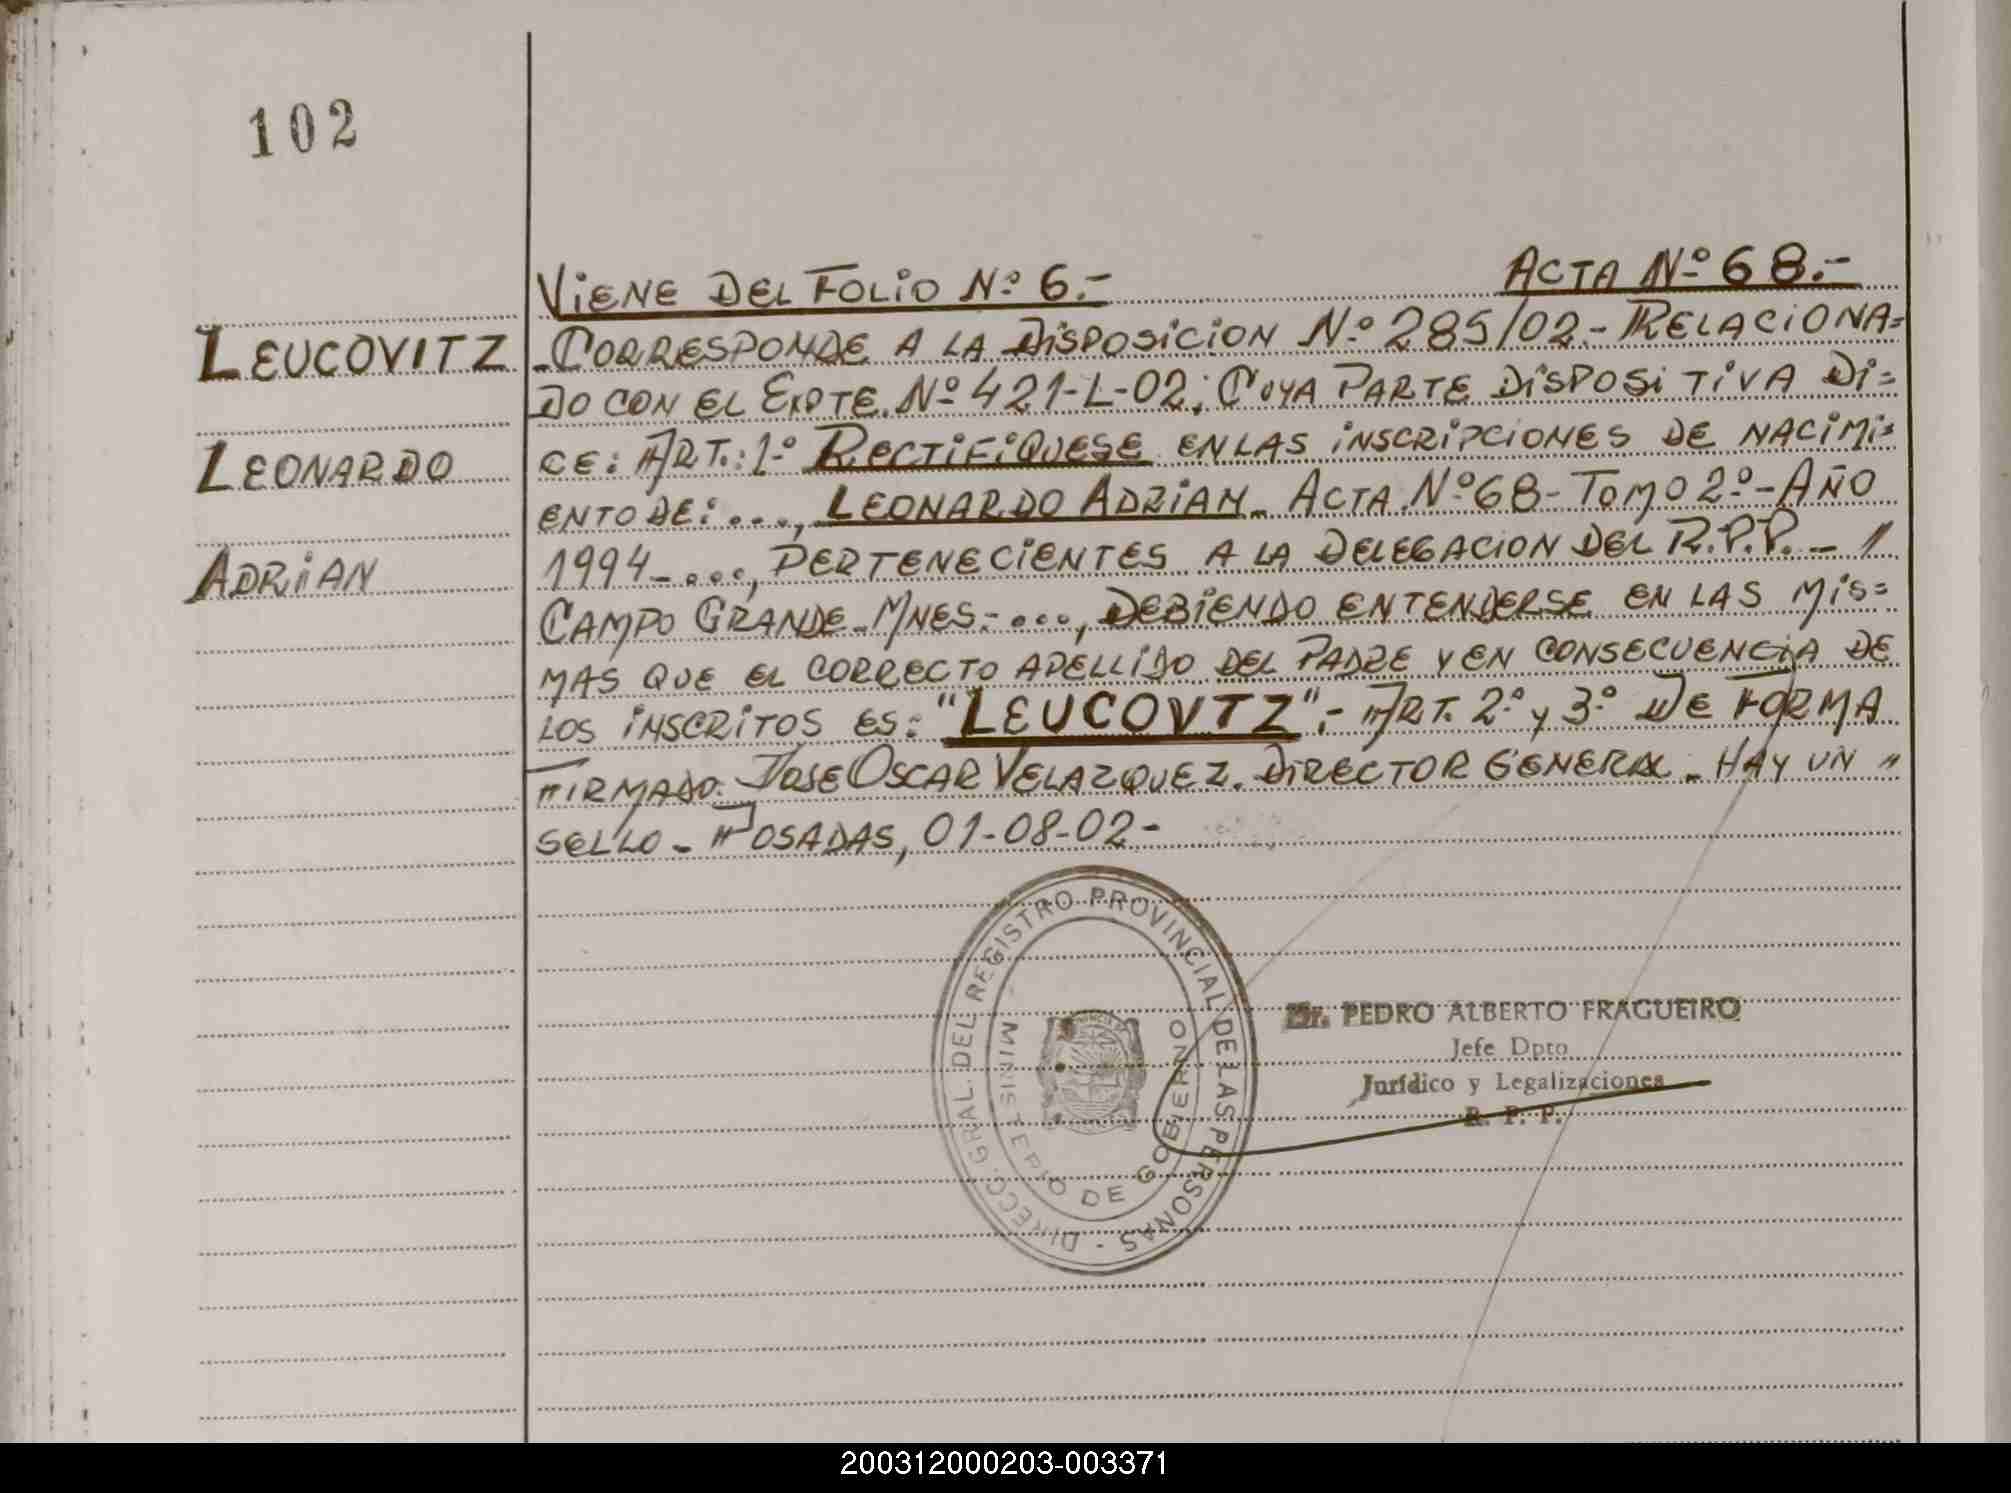 102
VIENE DEL FOLIO Nº 6.-
ACTA Nº 68.-
LEUCOVITZ
LEONARDO
ADRIAN
-CORRESPONDE A LA DISPOSICION Nº 285/02.- RELACIONA=
DO CON EL EXPTE. Nº 421-L-02; CUYA PARTE DISPOSITIVA DI=
CE: ART.: 1º RECTIFIQUESE EN LAS INSCRIPCIONES DE NACIMI=
ENTO DE: ..., LEONARDO ADRIAN- ACTA Nº 68- TOMO 2º- AÑO
1994-..., PERTENECIENTES A LA DELEGACION DEL R.P.P. - 1
CAMPO GRANDE-MNES.-..., DEBIENDO ENTENDERSE EN LAS MIS=
MAS QUE EL CORRECTO APELLIDO DEL PADRE Y EN CONSECUENCIA DE
LOS INSCRITOS ES: "LEUCOVTZ".- ART. 2º y 3º DE FORMA
FIRMADO. JOSE OSCAR VELAZQUEZ. DIRECTOR GENERAL - HAY UN "
SELLO - POSADAS, 01-08-02-
DIRECC. GRAL. DEL REGISTRO PROVINCIAL DE LAS PERSONAS -
MINISTERIO DE GOBIERNO
Dr. PEDRO ALBERTO FRAGUEIRO
Jefe Dpto
Jurídico y Legalizaciones
R. P. P.
200312000203-003371